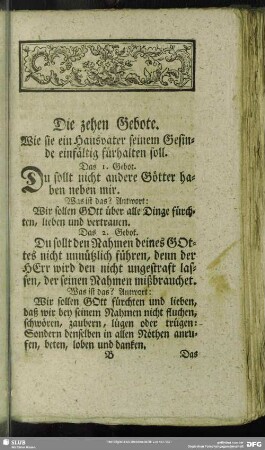 Die zehen Gebote.
Wie sie ein Hausvater seinem Gesin-
de einfältig fürhalten soll.
Das 1. Gebot.
Du sollt nicht andere Götter ha-
ben neben mir.
Was ist das? Antwort:
Wir sollen GOtt über alle Dinge fürch-
ten, lieben und vertrauen.
Das 2. Gebot.
Du sollt den Nahmen deines GOt-
tes nicht unnützlich führen, denn der
HErr wird den nicht ungestraft las-
sen, der seinen Nahmen mißbrauchet.
Was ist das? Antwort:
Wir sollen GOtt fürchten und lieben,
daß wir bey seinem Nahmen nicht fluchen,
schwören, zaubern, lügen oder trügen:
Sondern denselben in allen Nöthen anru-
fen, beten, loben und danken.
B Das
SLUB
Wir führen Wissen.